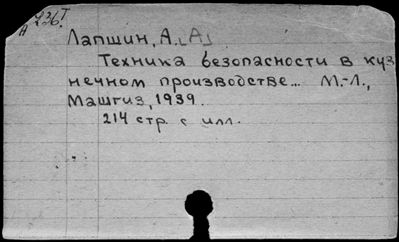 Лапшин, А. [А]
Техника безопасности в куз
нечном производстве... М.-Л.,
Машгиз, 1939.
214 стр. с илл.